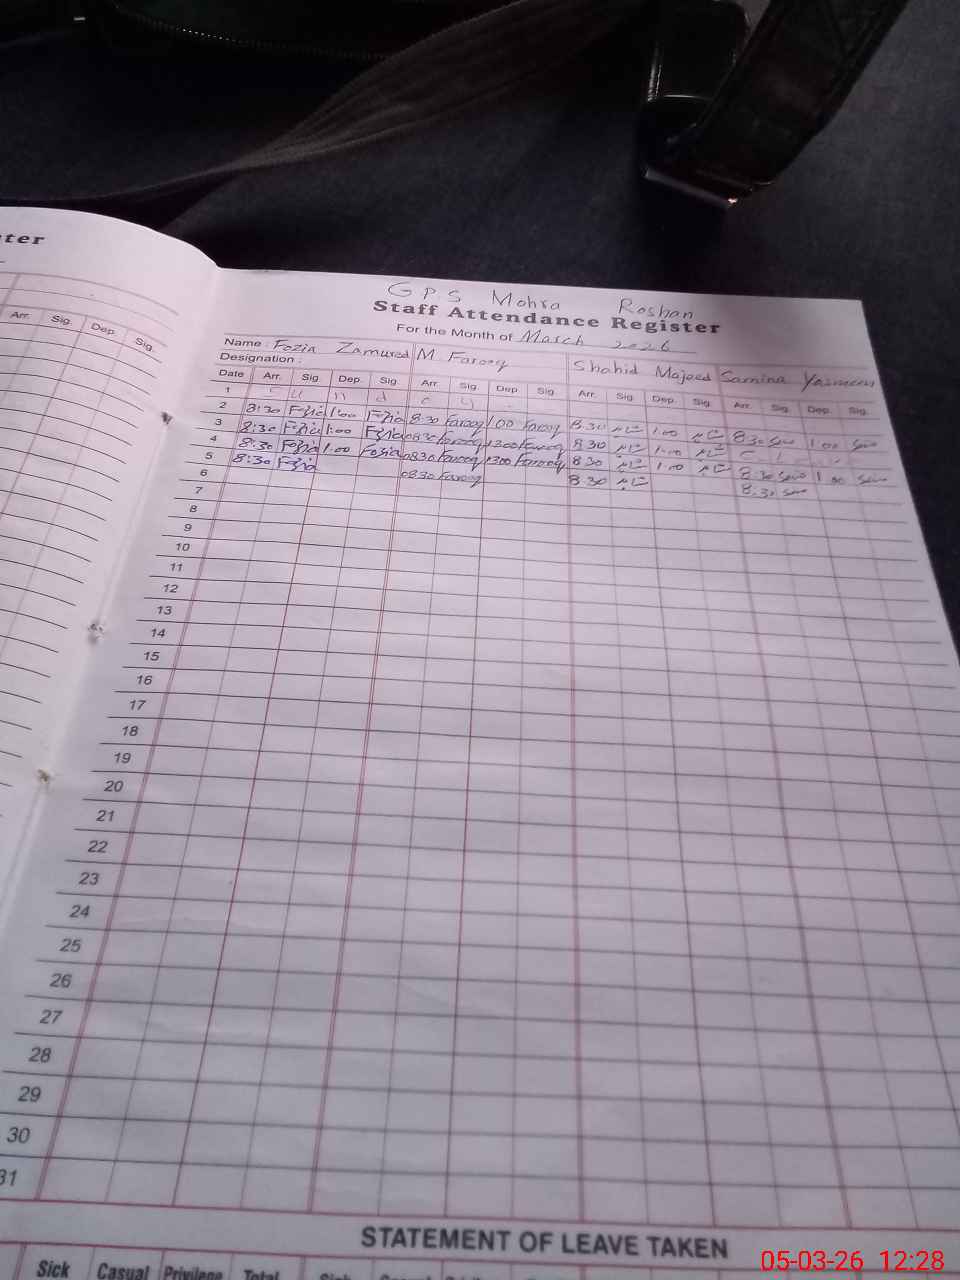 ster
Arr. Sig. Dep. Sig.
GPS Mohra Roshan
Staff Attendance Register
For the Month of March 2026
Name : Fozia Zamured M Farooq Shahid Majeed Samina Yasmeen
Designation :
Date Arr. Sig Dep. Sig. Arr. Sig. Dep. Sig. Arr. Sig. Dep. Sig. Arr. Sig. Dep. Sig.
1 S u n d
2 8:30 Fozia 1:00 Fozia 8:30 Farooq 1:00 Farooq 8.30 1.00 8.30 1.00
3 8:30 Fozia 1:00 Fozia 0830 Farooq 1300 Farooq 8.30 1.00 C L
4 8:30 Fozia 1:00 Fozia 0830 Farooq 1300 Farooq 8.30 1.00 8:30 1.00
5 8:30 Fozia 0830 Farooq 8.30 8.30
6
7
8
9
10
11
12
13
14
15
16
17
18
19
20
21
22
23
24
25
26
27
28
29
30
31
STATEMENT OF LEAVE TAKEN
Sick Casual Privilege Total Sick
05-03-26 12:28